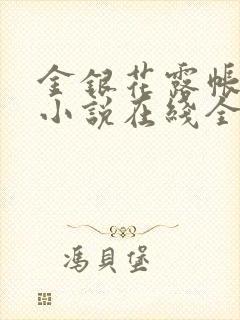 金銀花露帳
小説在綫全
馮貝堡